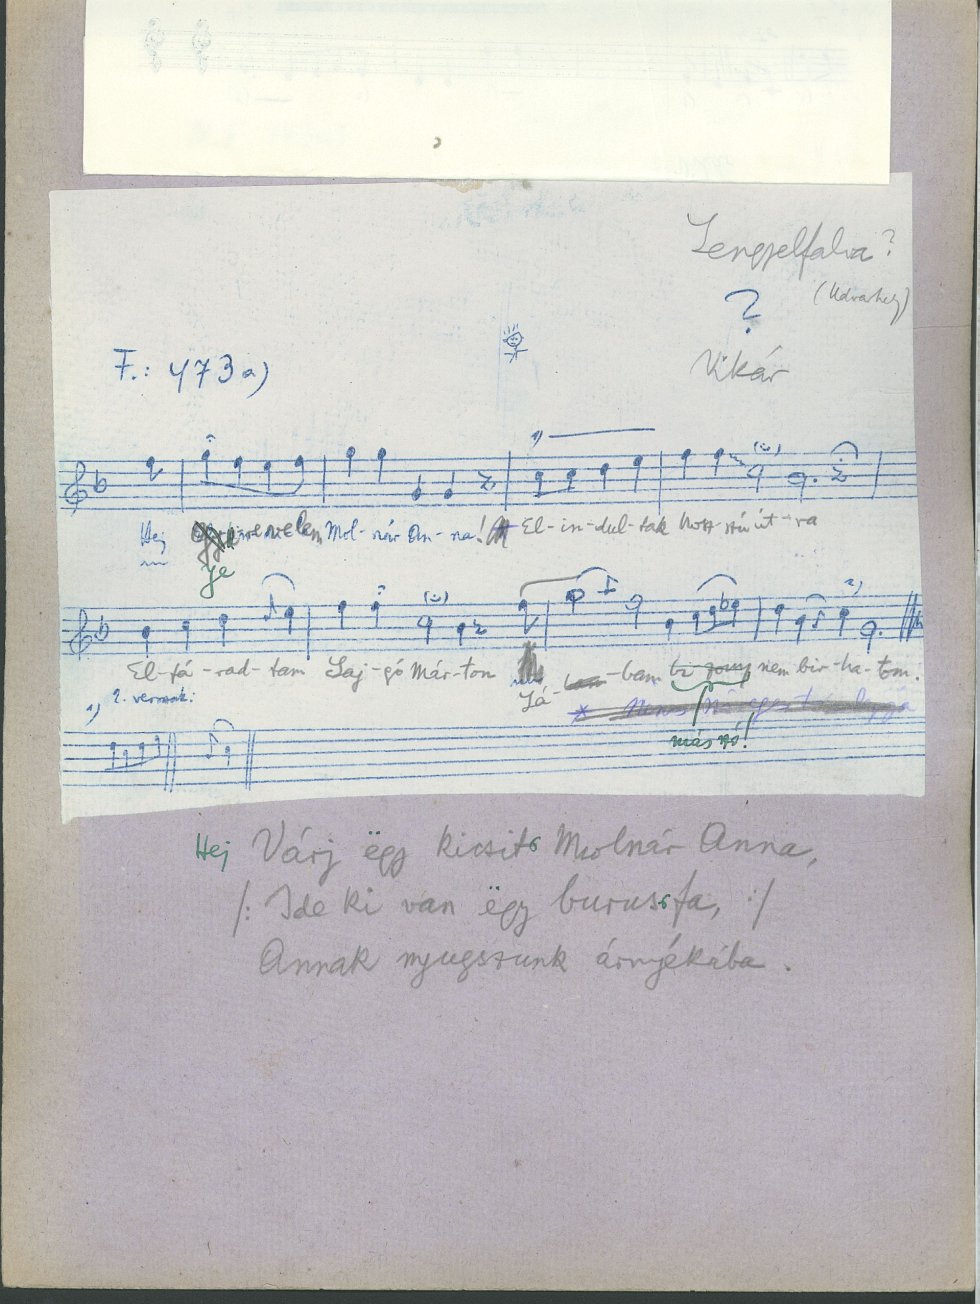 Lengyelfalva?
(Udvarhely)
?
Vikár
F.: 473 a)
1)
Hej velem, Mol-nár An-na! El-in-dul-tak hosz-szú út-ra
Je
2)
El-fá-rad-tam Saj-gó Már-ton Já- -bam nem bir-ha-tom.
1) 2. versszak:
más szó!
Hej Várj ëgy kicsit Molnár Anna,
/: Ide ki van ëgy burusfa, :/
Annak nyugszunk árnyékába.